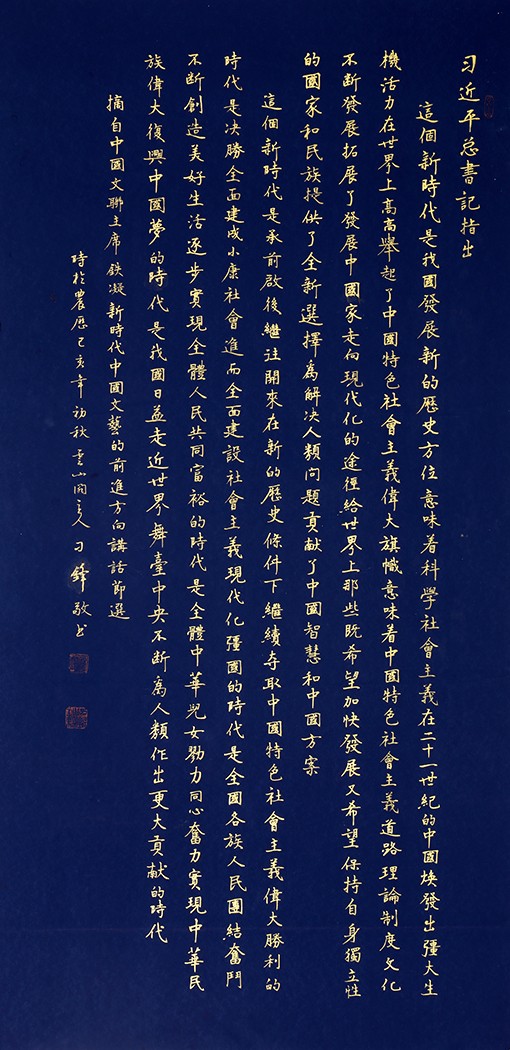 习近平总書記指出
這個新時代是我國發展新的歷史方位意味着科學社會主義在二十一世紀的中國焕發出彊大生
機活力在世界上高高舉起了中國特色社會主義偉大旗幟意味着中國特色社會主義道路理論制度文化
不断發展拓展了發展中國家走向現代化的途徑給世界上那些既希望加快發展又希望保持自身獨立性
的國家和民族提供了全新選擇爲解决人類问題貢献了中國智慧和中國方案
這個新時代是承前啟後繼往開來在新的歷史條件下繼續夺取中國特色社會主義偉大勝利的
時代是决勝全面建成小康社會進而全面建設社會主義現代化彊國的時代是全國各族人民團結奮鬥
不断創造美好生活逐步實現全體人民共同富裕的時代是全體中華兒女勠力同心奮力實現中華民
族偉大復興中國夢的時代是我國日益走近世界舞臺中央不断爲人類作出更大貢献的時代
摘自中國文聯主席鉄凝新時代中國文藝的前進方向講話節選
時於農歷己亥年初秋雲山主人刁鋒敬书